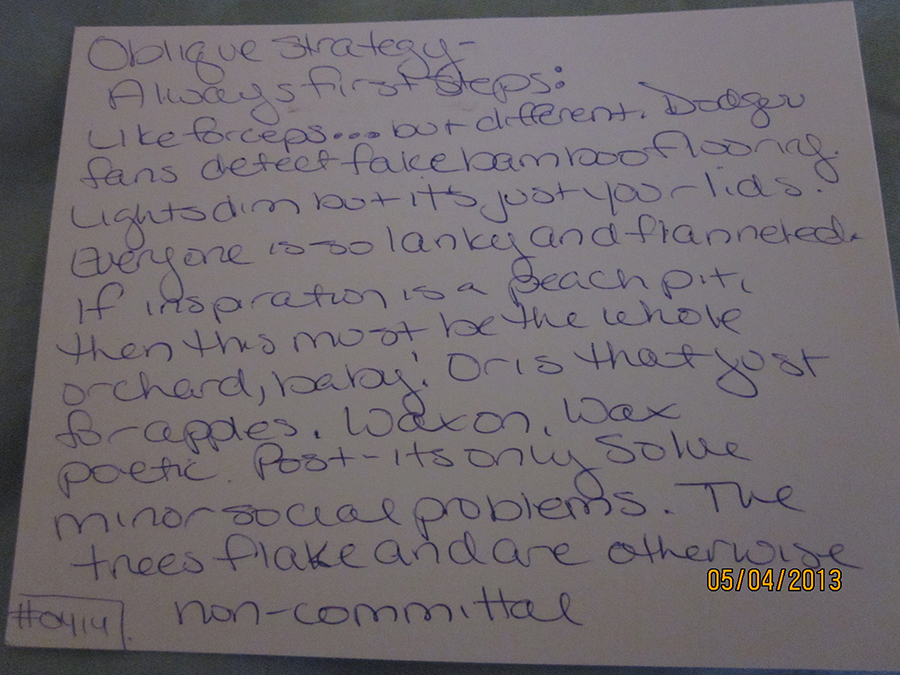 Oblique Strategy-
Always first steps:
Like forceps... but different. Dodger
fans detect fake bamboo flooring.
Lights dim but it's just your lids.
Everyone is so lanky and flanneled.
If inspiration is a peach pit,
then this must be the whole
orchard, baby! Or is that just
for apples. Wax on, Wax
poetic. Post-its only solve
minor social problems. The
trees flake and are otherwise
non-committal
#0414
05/04/2013